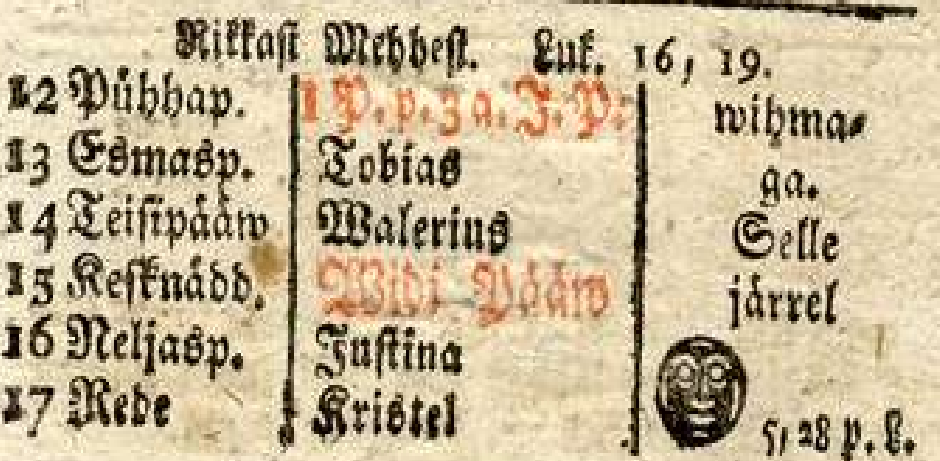 Rikkast Mehhest. Luk. 16, 19.
12 Pühhap. 1 P. p. 3 a. J. P. wihma-
13 Esmasp. Tobias ga.
14 Teisipääw Walerius Selle
15 Kesknädd. Widi Pääw järrel
16 Neljasp. Justina
17 Rede Kristel 5, 28 p. L.